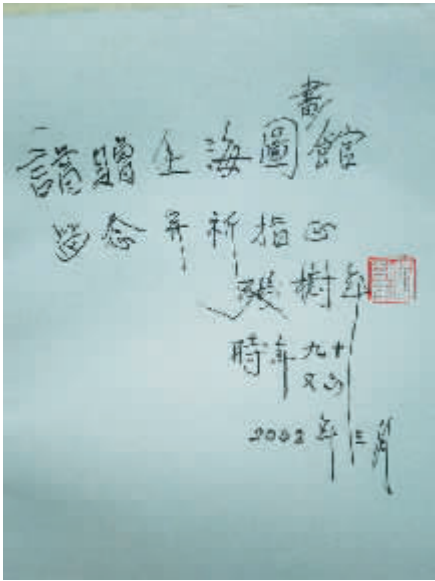 謹贈上海圖書館
留念并祈指正
張樹年
時年九十
又六
2002年三月